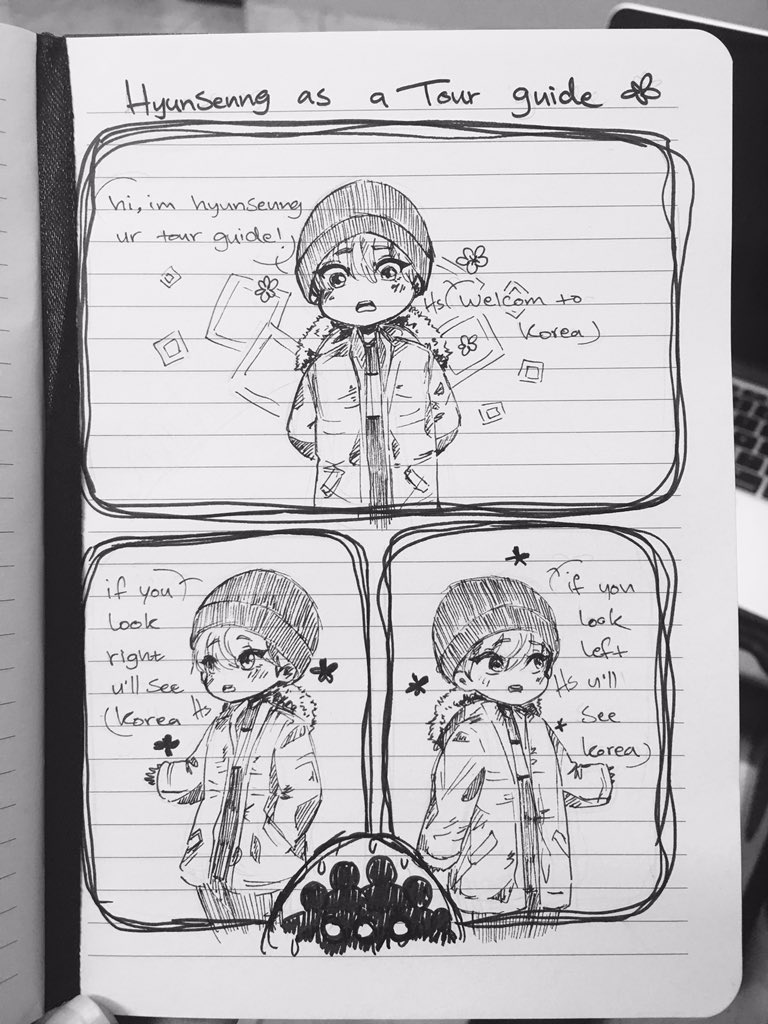 Hyunseung as a Tour guide
hi, im hyunseung
ur tour guide!
Hs (Welcom to
Korea)
if you
look
right
u'll see
(Korea Hs
if you
look
left
Hs u'll
see
korea)